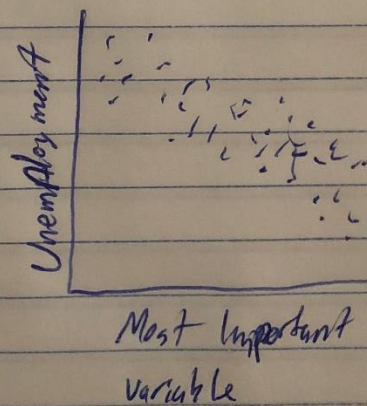 Unemployment
Most Important
Variable